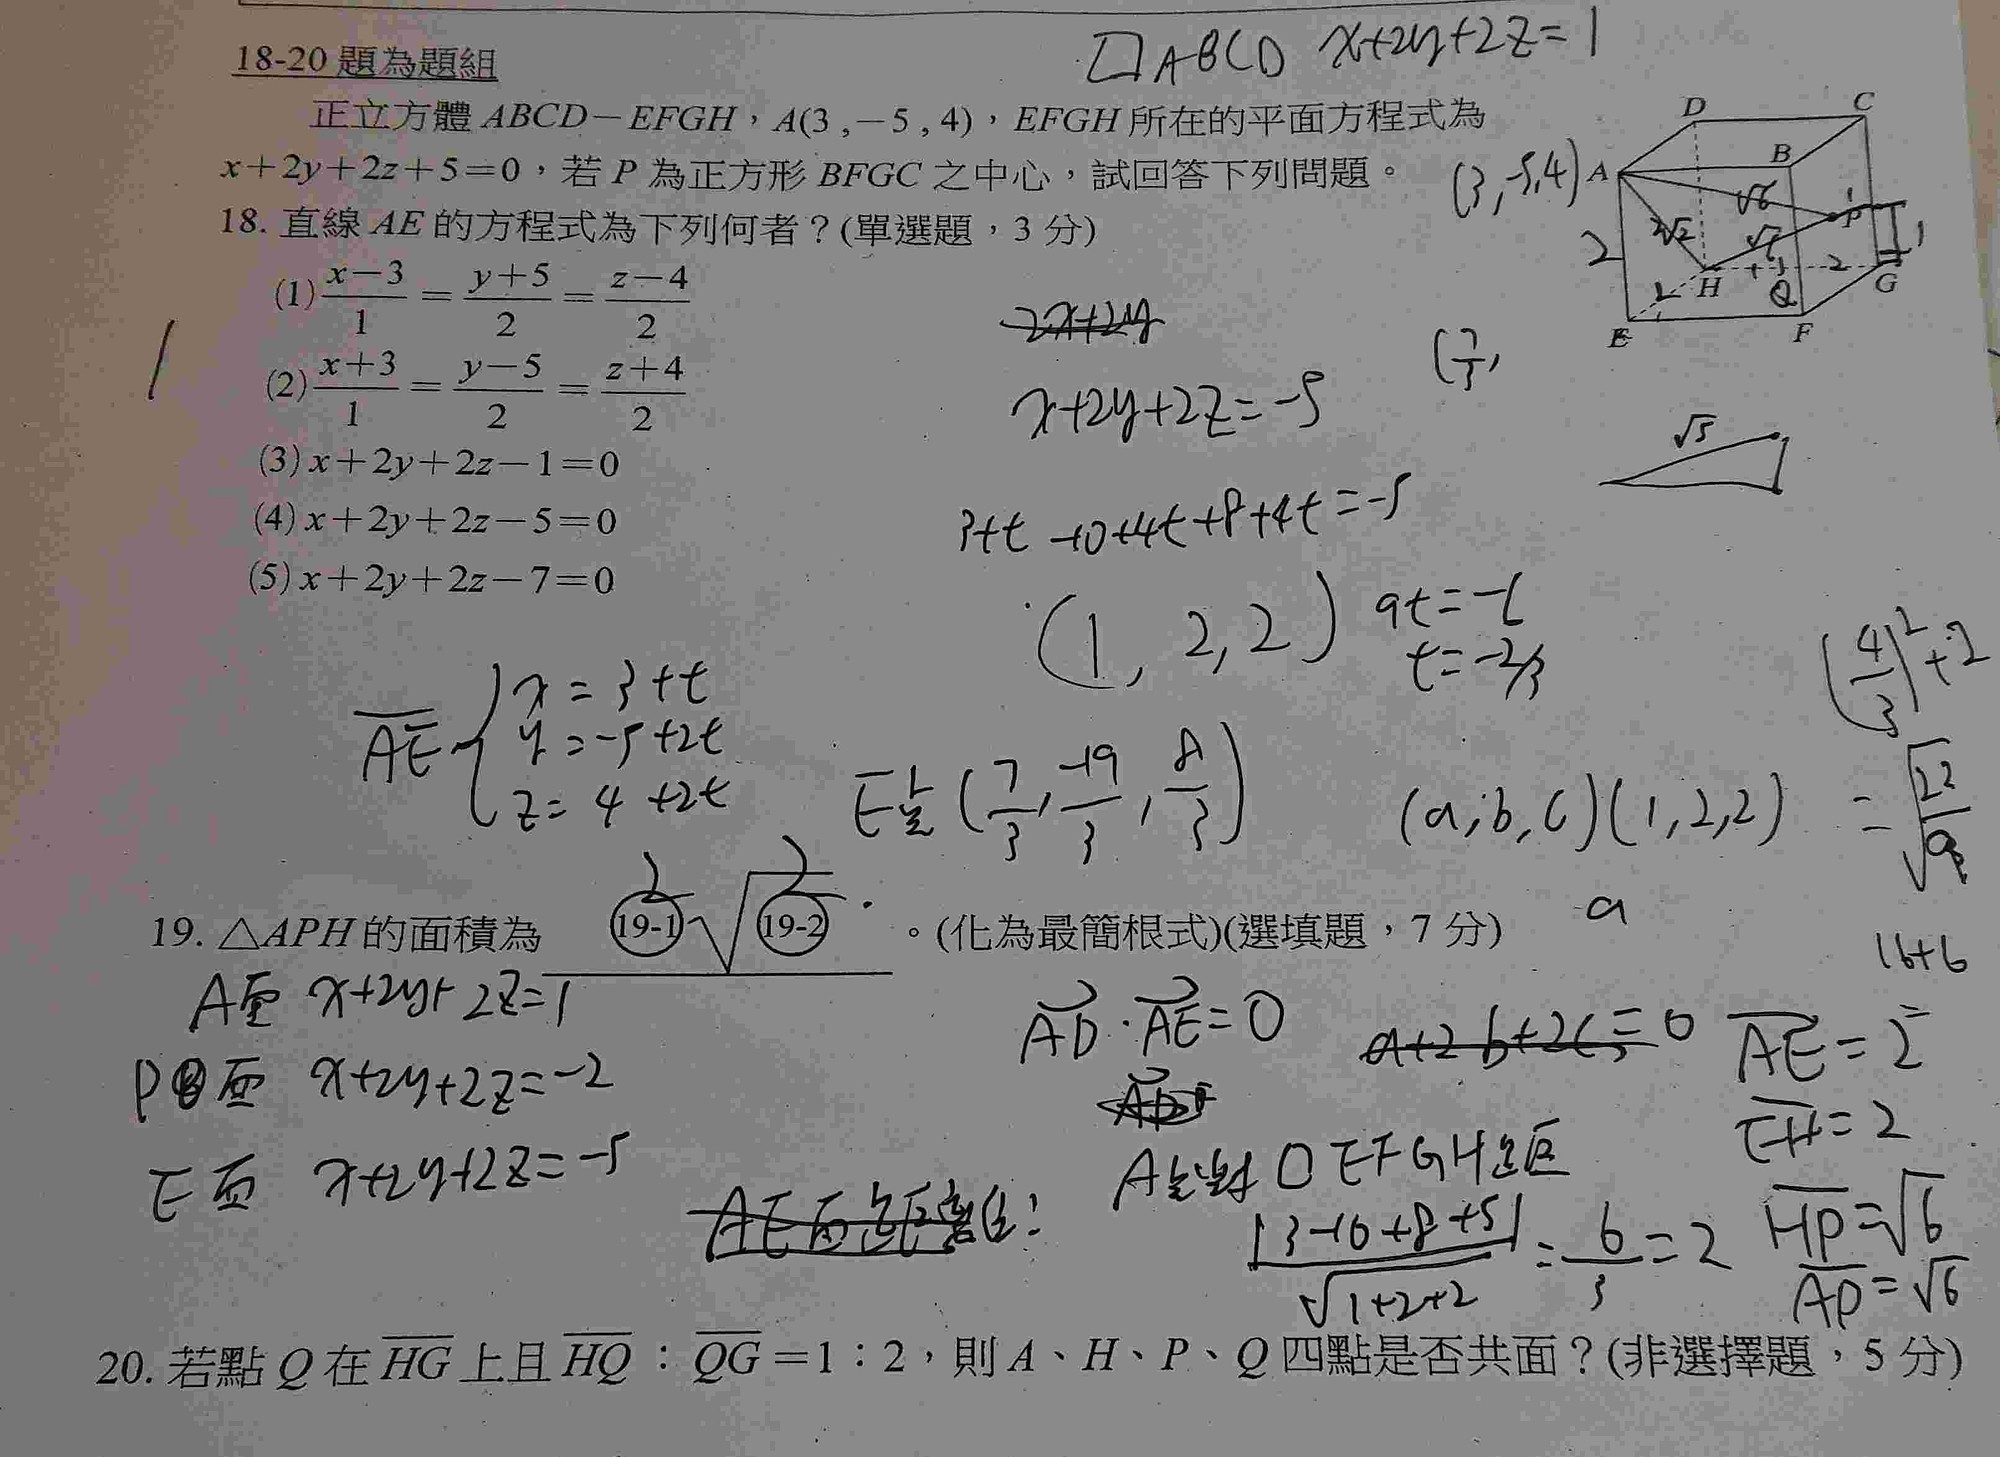 □ABCD x+2y+2z=1
18-20 題為題組
正立方體 ABCD－EFGH，A(3 ,－5 , 4)，EFGH 所在的平面方程式為
x＋2y＋2z＋5＝0，若 P 為正方形 BFGC 之中心，試回答下列問題。
18. 直線 AE 的方程式為下列何者？(單選題，3 分)
(1) (x－3)/1 ＝ (y＋5)/2 ＝ (z－4)/2
(2) (x＋3)/1 ＝ (y－5)/2 ＝ (z＋4)/2
(3) x＋2y＋2z－1＝0
(4) x＋2y＋2z－5＝0
(5) x＋2y＋2z－7＝0
D C
(3,-5,4) A B
√6 1 P
2 2√2 √6 1
H 1 Q 2 G
E F
2x+2y
(7/3,
x+2y+2z=-5
√5
3+t -10+4t+8+4t=-5
(1, 2, 2) 9t=-6
t=-2/3
(4/3)²+2
=√(22/9)
16+6
AE { x=3+t
y=-5+2t
z=4+2t
E點 (7/3, -19/3, 8/3)
(a,b,c)(1,2,2)
a
2 2
19. △APH 的面積為 (19-1)√(19-2) 。(化為最簡根式)(選填題，7 分)
A面 x+2y+2z=1
P面 x+2y+2z=-2
E面 x+2y+2z=-5
AD·AE=0
a+2b+2c=0
AE=2
EH=2
HP=√6
AP=√6
A點對□EFGH距
|3-10+8+5|/√(1+2+2) = 6/3 = 2
20. 若點 Q 在 HG 上且 HQ：QG＝1：2，則 A、H、P、Q 四點是否共面？(非選擇題，5 分)